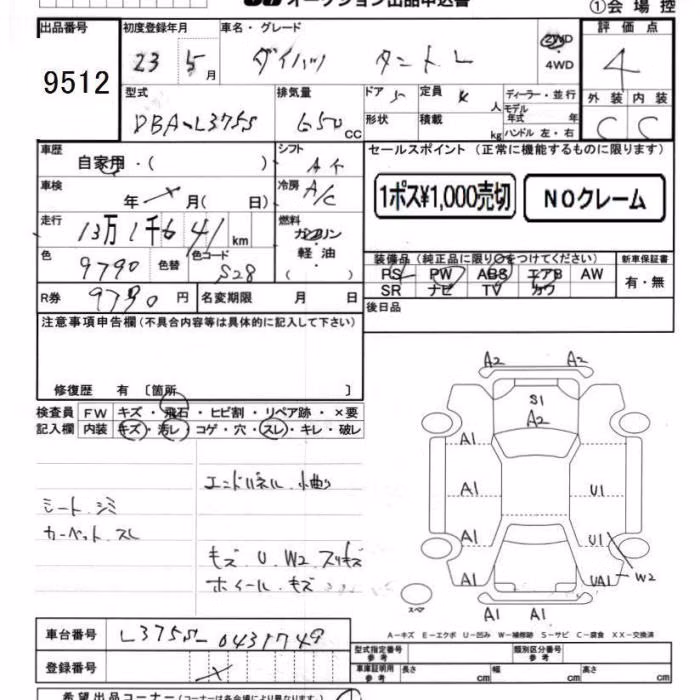 オークション出品申込書 ①会場控
出品番号 初度登録年月 車名・グレード 2WD 4WD 評価点
9512 23 5月 ダイハツ タント L 4
型式 排気量 ドア 5 定員 4人 ディーラー・並行 外装 内装
DBA-L375S 650 CC 形状 積載 kg モデル年式 年式 ハンドル 左・右 C C
車歴 自家用・( ) シフト AT セールスポイント (正常に機能するものに限ります)
車検 年 月( 日) 冷房 A/C 1ポス¥1,000売切 NOクレーム
走行 13万1千641km 燃料 ガソリン 軽油 ( )
色 9790 色替 色コード S28 装備品(純正品に限り○をつけてください) 新車保証書
PS PW ABS エアB AW 有・無
R券 9790円 名変期限 月 日 SR ナビ TV カワ
後日品
注意事項申告欄(不具合内容等は具体的に記入して下さい)
修復歴 有 〔箇所 〕
検査員 FW キズ・飛石・ヒビ割・リペア跡・×要
記入欄 内装 キズ・汚レ・コゲ・穴・スレ・キレ・破レ
A2 A2
S1
A2
A1
エンドパネル 小曲り A1 U1
シート シミ
カーペット スレ A1 U1
キズ U W2 スリキズ
ホイール キズ A1 UA1 W2
スペア A1 A1
A-キズ E-エクボ U-凹み W-補修跡 S-サビ C-腐食 XX-交換済
車台番号 L375S-0431749
登録番号 型式指定番号 参考 類別区分番号 参考
車庫証明用 参考 長さ cm 幅 cm 高さ cm
希望出品コーナー